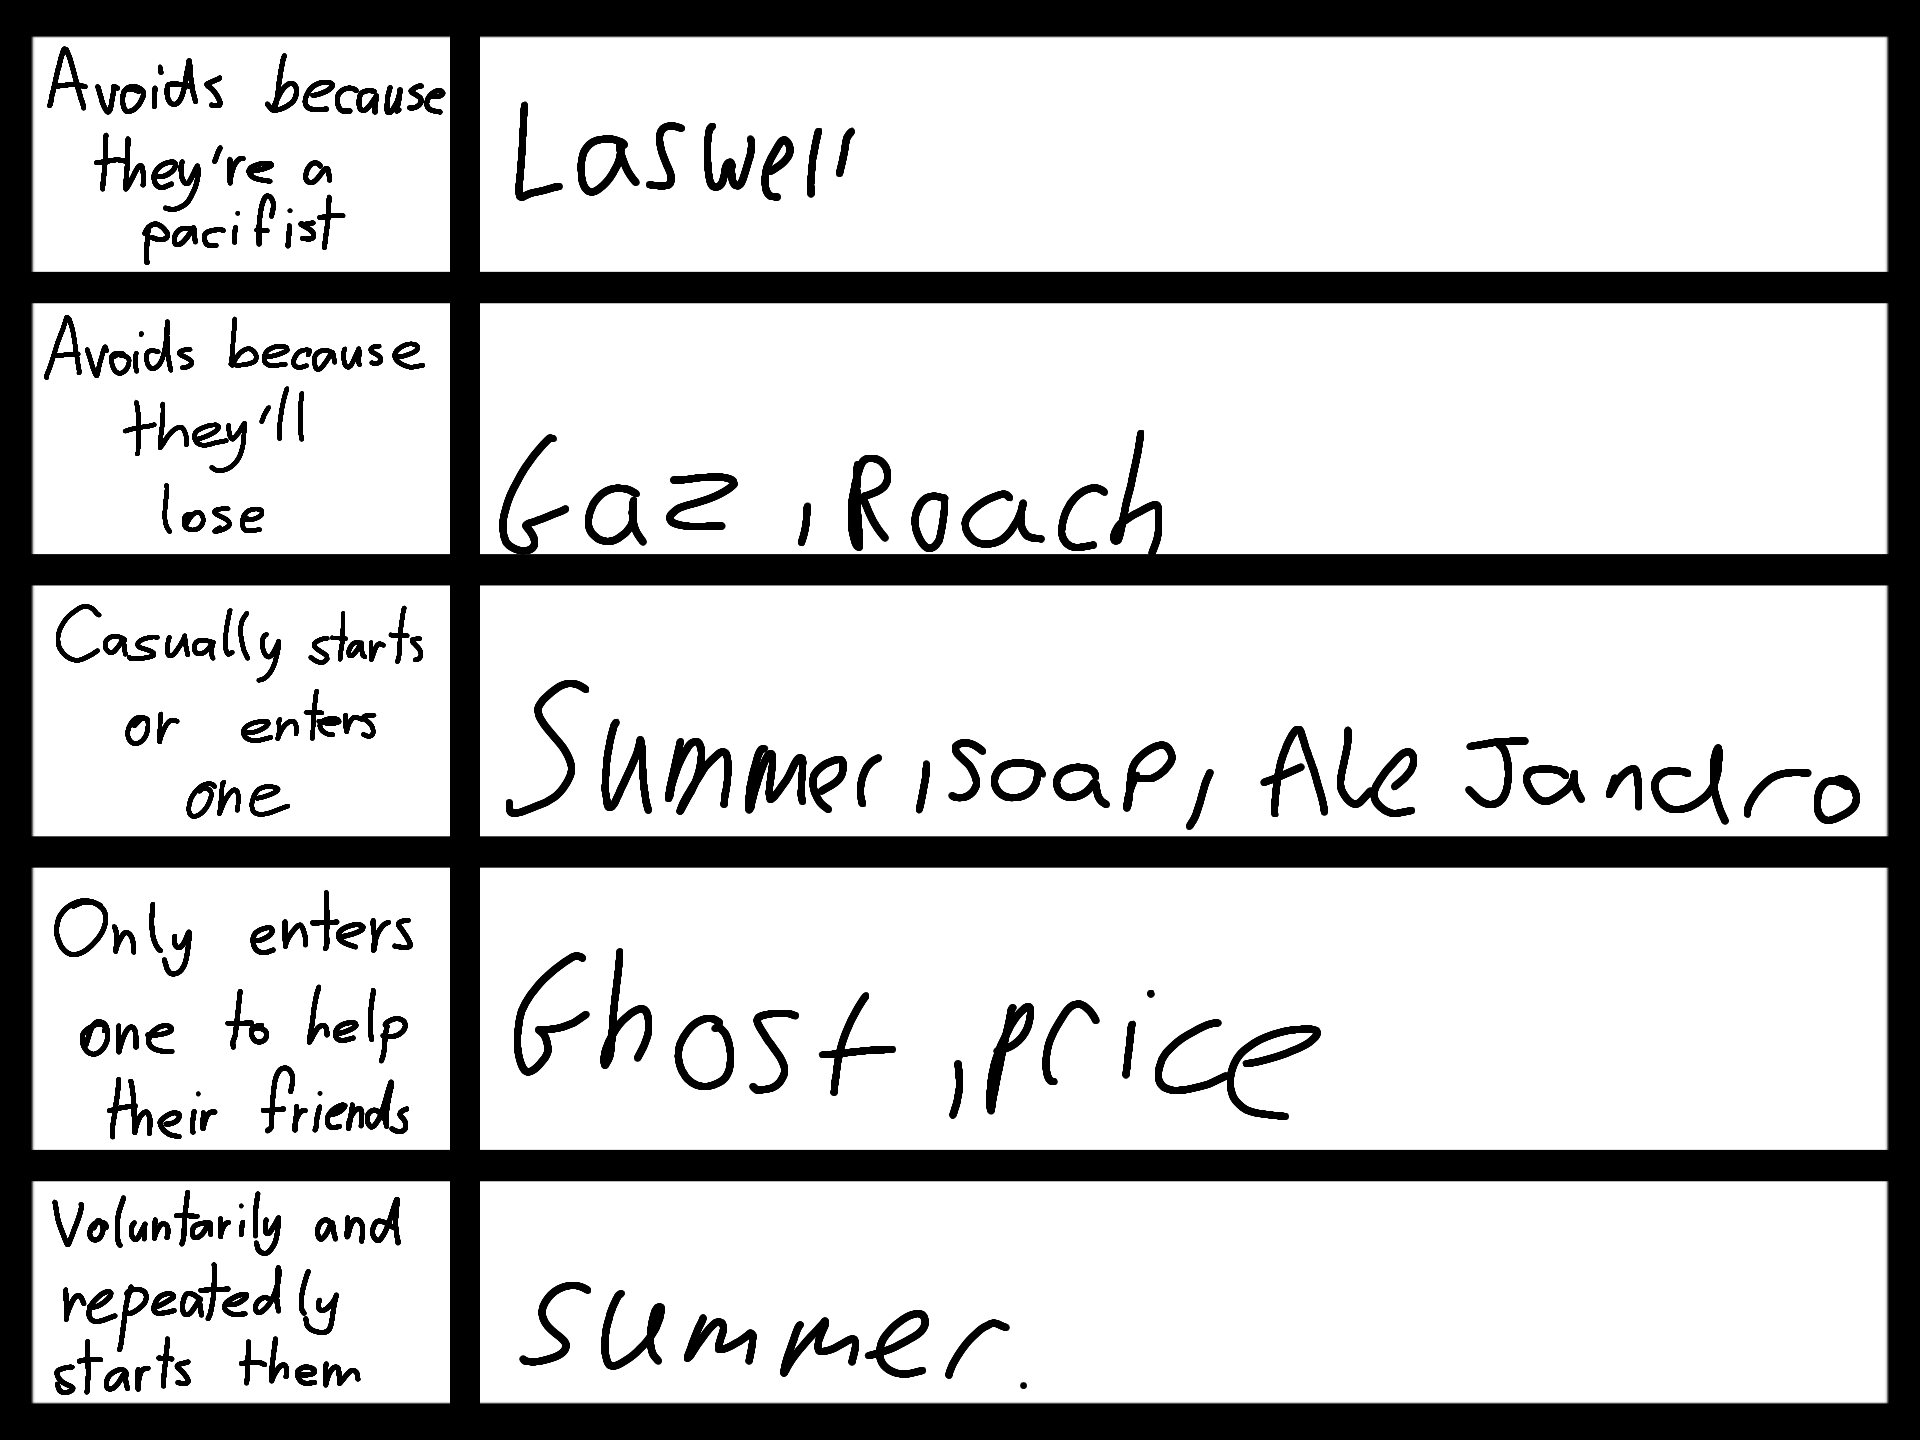 Avoids because
they're a
pacifist
Laswell
Avoids because
they'll
lose
Gaz, Roach
Casually starts
or enters
one
Summer, soap, AleJandro
Only enters
one to help
their friends
Ghost, price
Voluntarily and
repeatedly
starts them
summer.